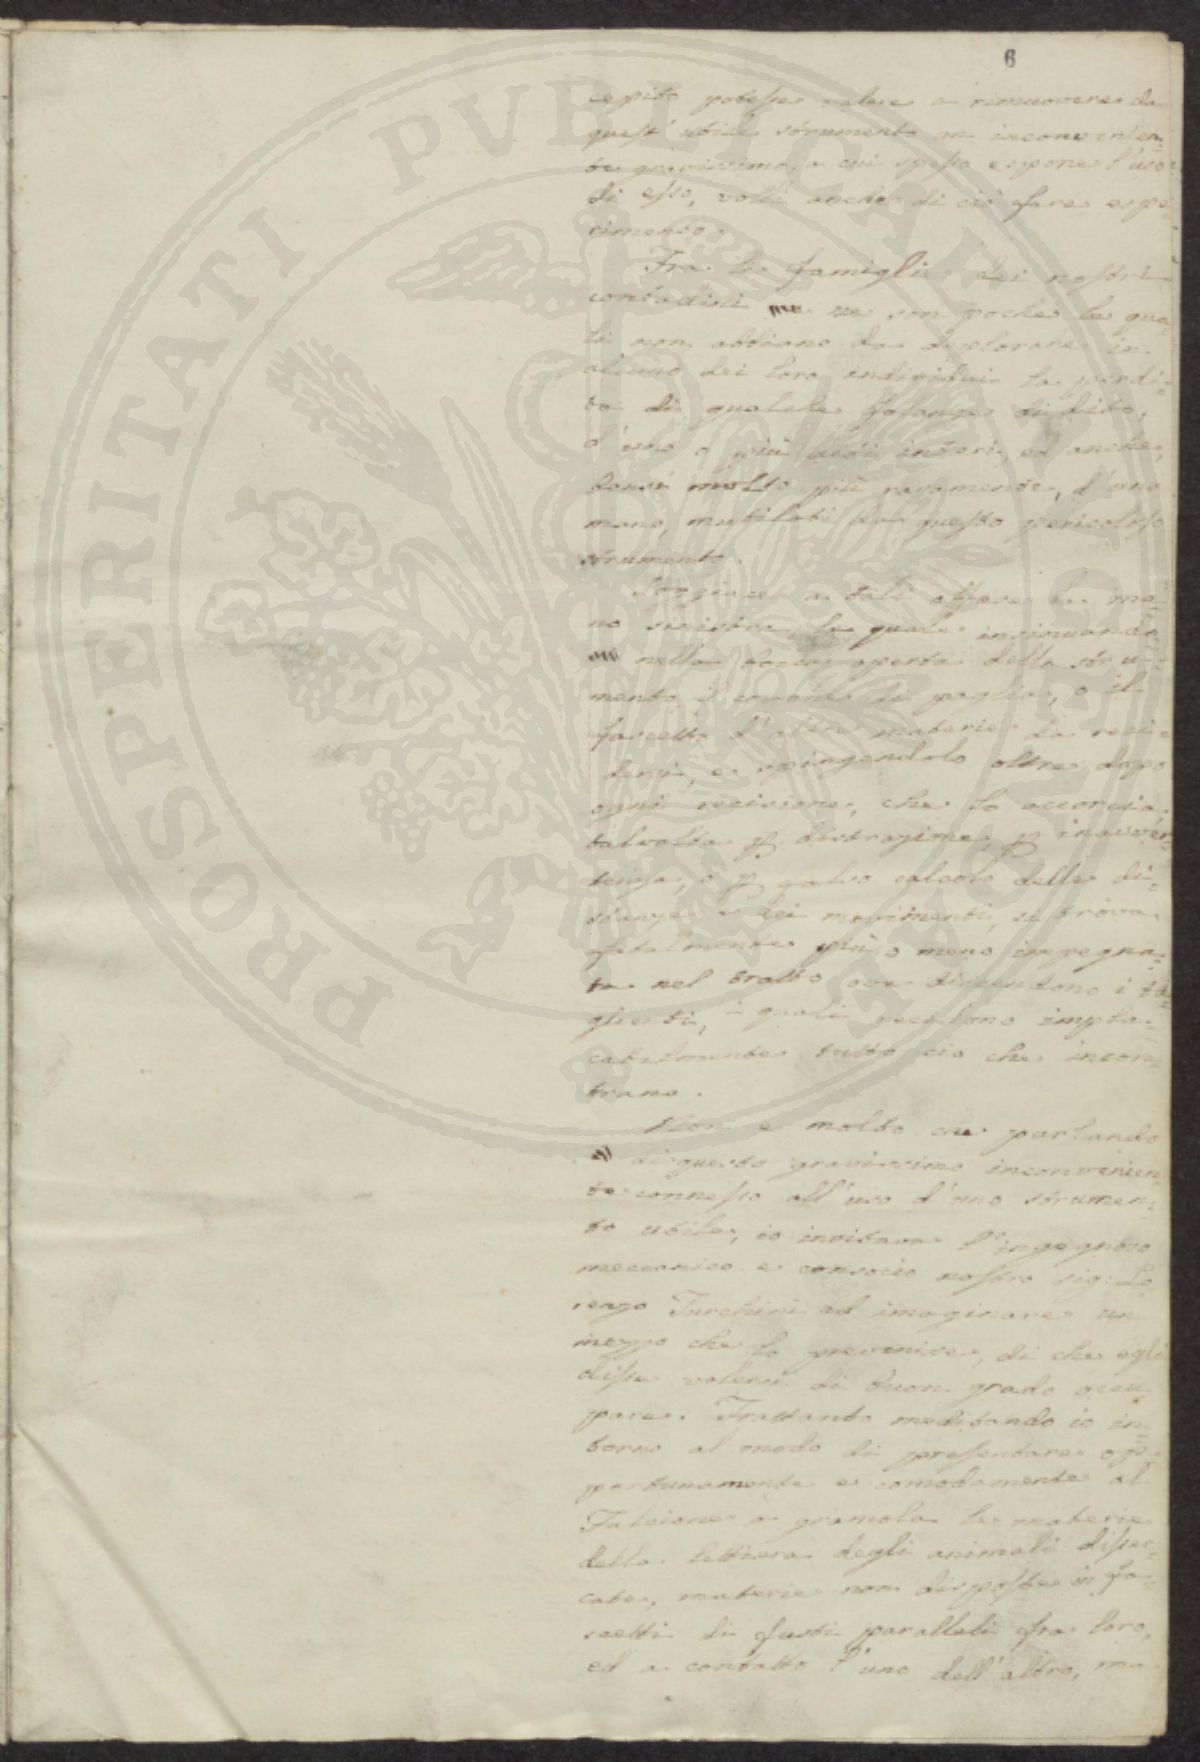 6
cepito potesse valere a rimuovere da
quest' utile strumento un inconvenien=
te gravissimo a cui spesso espone l'uso
di esso, volli anche di ciò fare espe=
rimento.
Fra le famiglie dei nostri
contadini ve ne son poche le qua
li non abbiano da deplorare in
alcuno dei loro individui la perdi=
ta di qualche falange di dito,
d'uno o più diti interi, ed anche,
bensì molto più raramente, d'una
mano, mutilati da questo pericoloso
strumento.
Soggiace a tali offese la ma=
no sinistra, la quale insinuando
nella bocca aperta dello stru=
mento il covone di paglia, o il
fascetto d'altre materie da reci=
dersi, e spingendolo oltre dopo
ogni recisione, che lo accorcia,
talvolta p distrazione, p inavver
tenza, o p falso calcolo delle di=
stanze e dei movimenti, si trova
fatalmente più o meno impegna=
ta nel tratto ove discendono i ta=
glienti, i quali recidono impla=
cabilmente tutto ciò che incon=
trano.
Non è molto che parlando
di questo gravissimo inconvenien=
te connesso all'uso d'uno strumen=
to utile, io invitava l'ingegnoso
meccanico e consocio nostro sig: Lo
renzo Turchini ad imaginare un
mezzo che lo prevenisse, di che egli
disse volersi di buon grado occu
pare. Frattanto meditando io in=
torno al modo di presentare op=
portunamente e comodamente al
Falcione a gramola le materie
della lettiera degli animali dissec=
cate, materie non disposte in fa=
scetti di fusti paralleli fra loro,
ed a contatto l'uno dell'altro, ma
PROSPERITATI PVBLICAE AVGENDAE